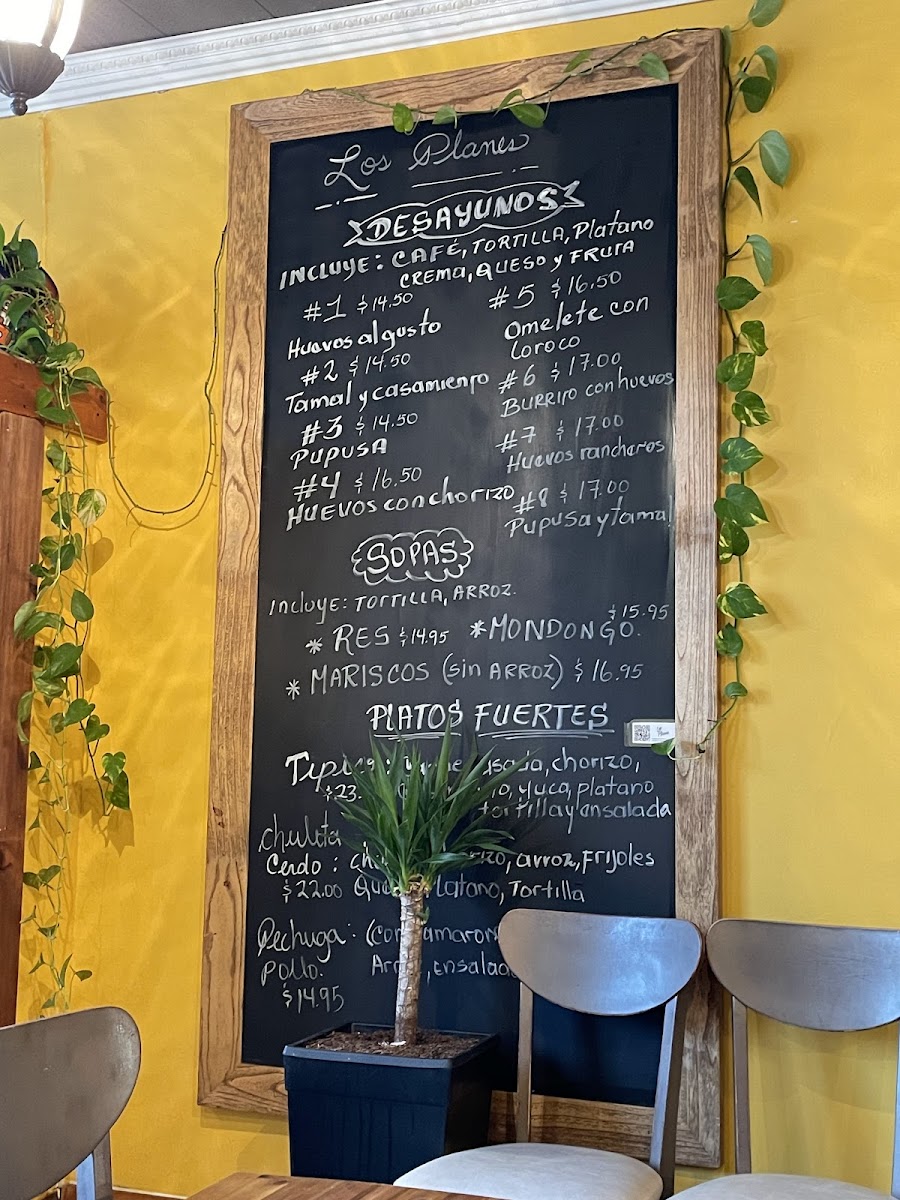 Los Planes
DESAYUNOS
INCLUYE: CAFÉ, TORTILLA, Platano
CREMA, QUESO y FRUTA
#1 $14.50
Huevos al gusto
#2 $14.50
Tamal y casamiento
#3 $14.50
PUPUSA
#4 $16.50
HUEVOS con chorizo
#5 $16.50
Omelete con
Loroco
#6 $17.00
BURRITO con huevos
#7 $17.00
Huevos rancheros
#8 $17.00
Pupusa y tamal
SOPAS
Incluye: TORTILLA, ARROZ.
* RES $14.95
*MONDONGO. $15.95
* MARISCOS (sin ARROZ) $16.95
PLATOS FUERTES
asada, chorizo,
$23. yuca, platano
tortilla y ensalada
chuleta
Cerdo: arroz, Frijoles
$22.00 Tortilla
Pechuga:
Pollo. ensalada
$14.95